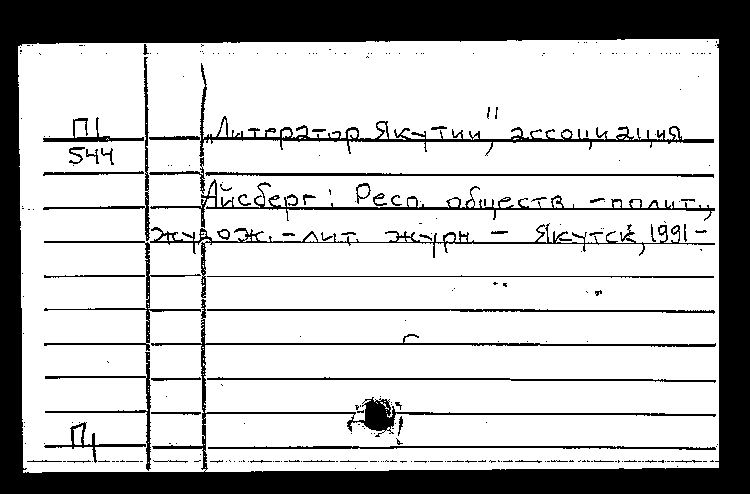 П1
544
„Литератор Якутии", ассоциация
Айсберг: Респ. обществ.-полит.,
худож.-лит. журн. - Якутск, 1991-